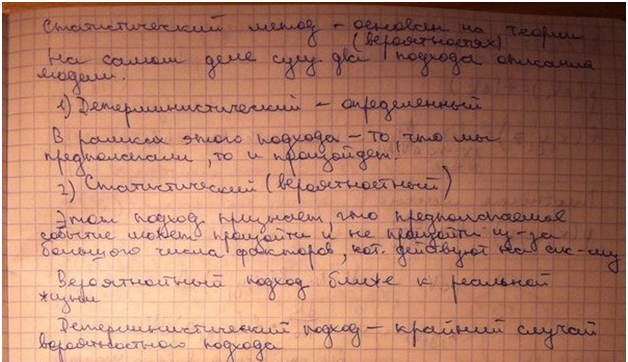 Статистический метод – основан на теории
(вероятностях)
На самом деле сущ. два подхода описания
модели.
1) Детерминистический – определенный
В рамках этого подхода – то, что мы
предполагали, то и произойдет!
2) Статистический (вероятностный)
Этот подход признает, что предполагаемое
событие может произойти и не произойти из-за
большого числа факторов, кот. действуют на сис-му
Вероятностный подход ближе к реальной
жизни
Детерминистический подход – крайний случай
вероятностного подхода